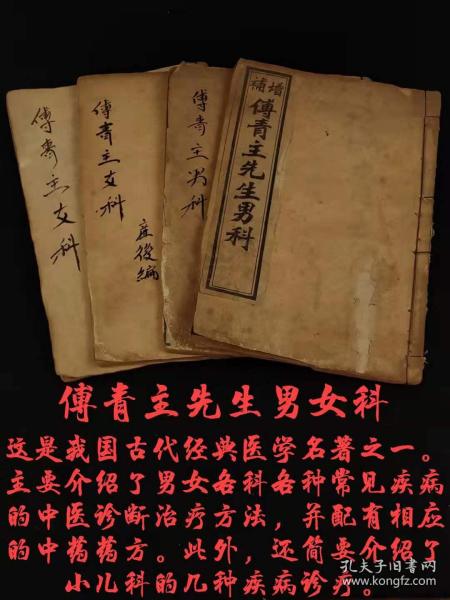 傅青主女科
傅青主女科
产後编
傅青主男科
增補
傅青主先生男科
傅青主先生男女科
这是我国古代经典医学名著之一。
主要介绍了男女各科各种常见疾病
的中医诊断治疗方法，并配有相应
的中药药方。此外，还简要介绍了
小儿科的几种疾病诊疗。
孔夫子旧书网
www.kongfz.com